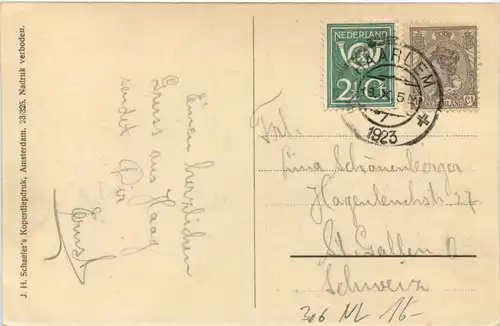 J. H. Schaefer's Koperdiepdruk, Amsterdam. 23/326. Nadruk verboden.
Einen herzlichen
Gruss aus Haag
sendet Dir
Ernst
NEDERLAND
2½ Ct
HAARLEM
1923
NEDERLAND
Frl.
Lina Schönenberger
Hagenbuchstr. 27
St. Gallen O
Schweiz
306 NL 15-